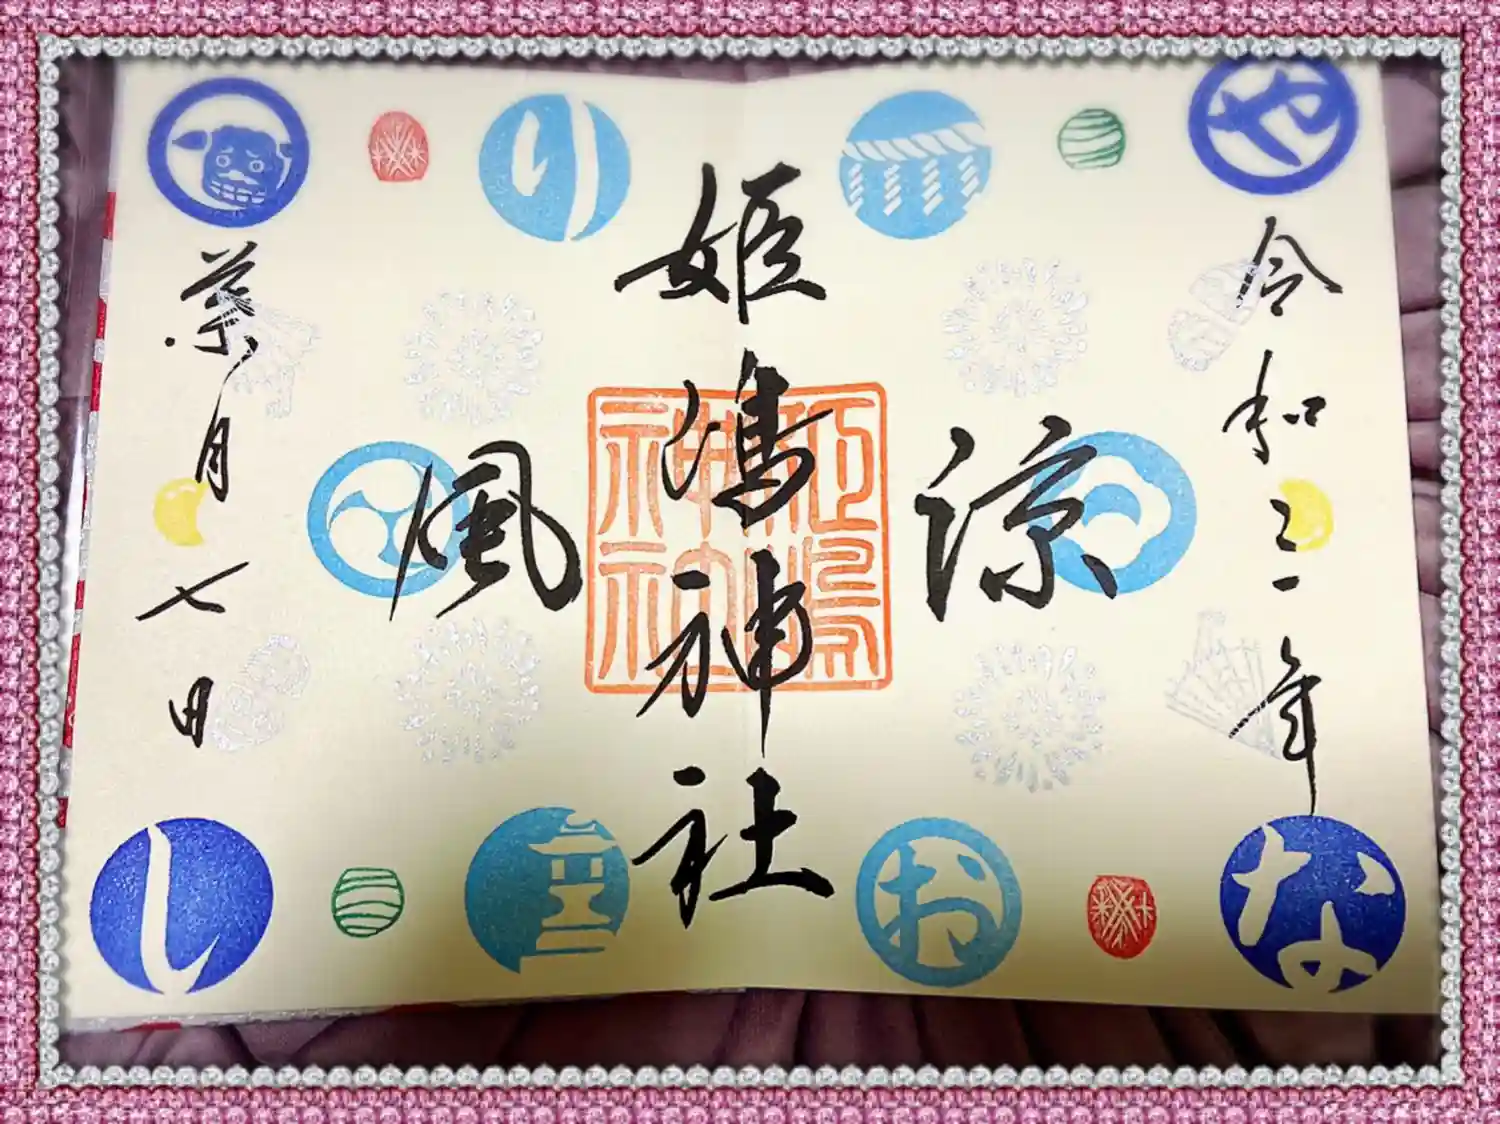 令和三年
涼
姫嶋神社
風
葉月七日
や
り
な
お
し
姫嶋神社